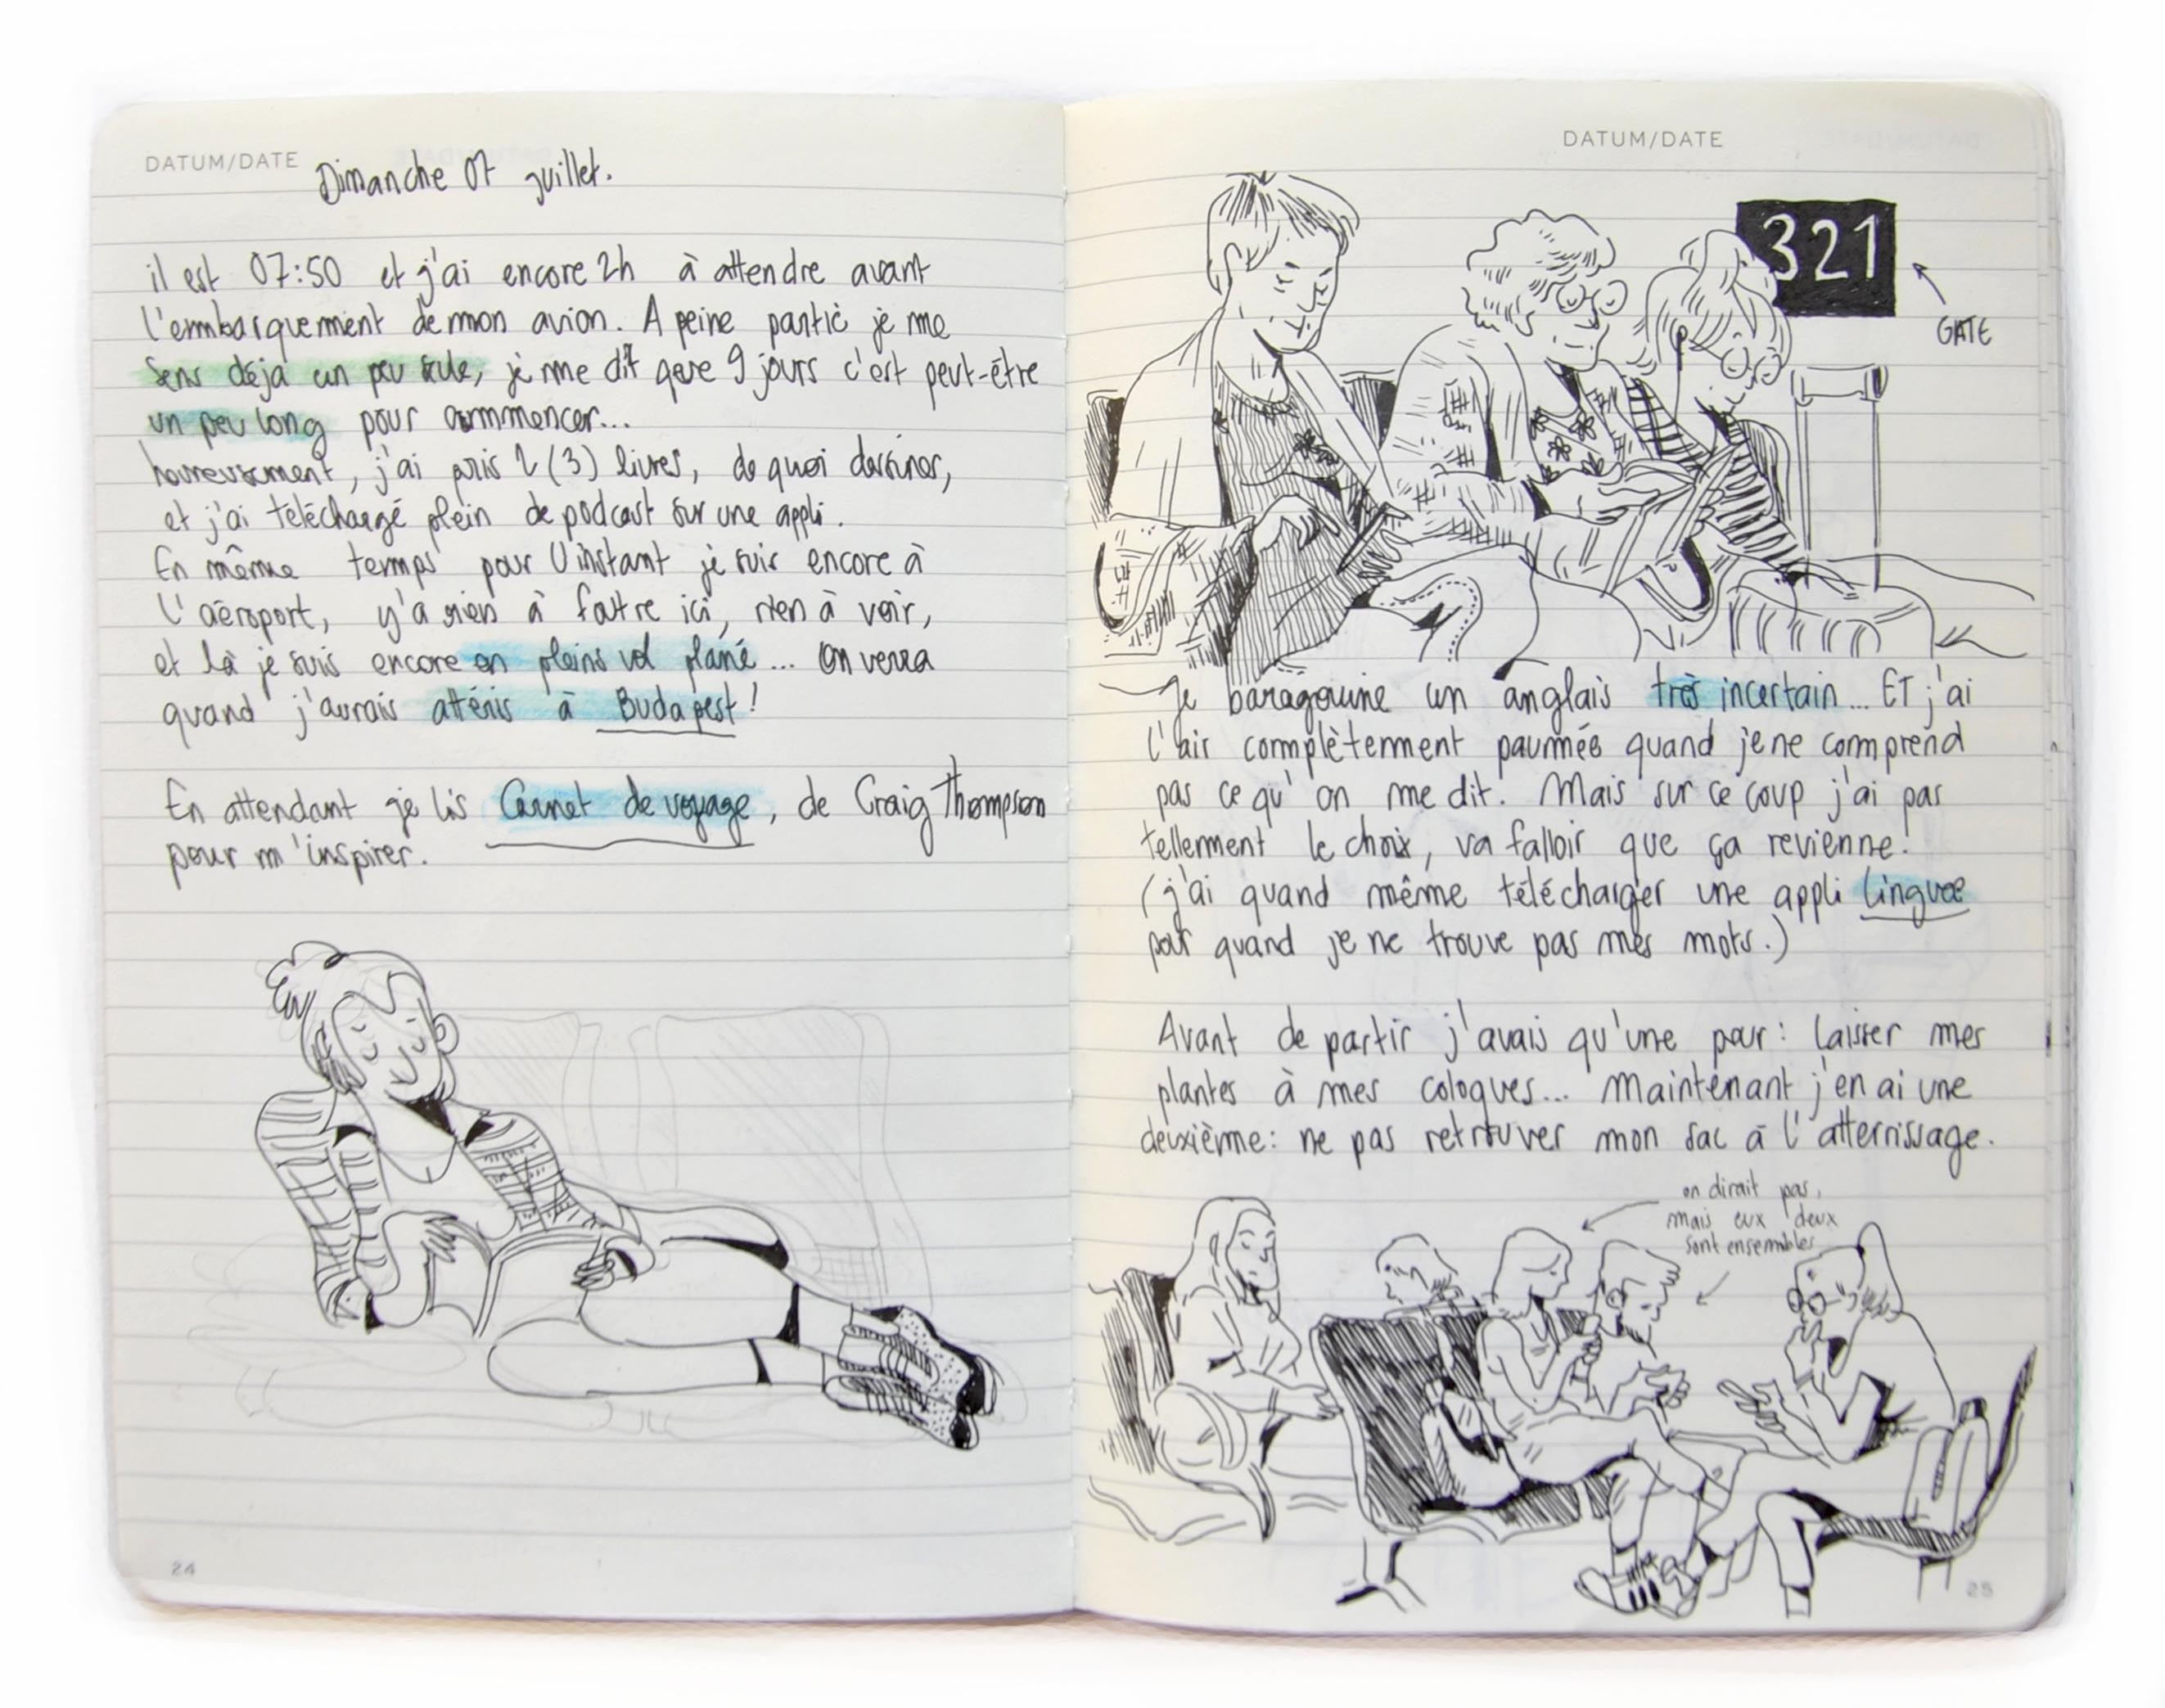 DATUM/DATE
Dimanche 07 juillet.
il est 07:50 et j'ai encore 2h à attendre avant
l'embarquement de mon avion. A peine partie je me
sens déja un peu seule, je me dit que 9 jours c'est peut-être
un peu long pour commencer...
heureusement, j'ai pris 2 (3) livres, de quoi dessiner,
et j'ai téléchargé plein de podcast sur une appli.
En même temps pour l'instant je suis encore à
l'aéroport, y'a rien à faire ici, rien à voir,
et là je suis encore en pleins vol plané... On verra
quand j'aurais attéris à Budapest!
En attendant je lis Carnet de voyage, de Craig Thompson
pour m'inspirer.
24
DATUM/DATE
321
GATE
Je baragouine un anglais très incertain... ET j'ai
l'air complètement paumée quand je ne comprend
pas ce qu'on me dit. Mais sur ce coup j'ai pas
tellement le choix, va falloir que ça revienne!
(j'ai quand même télécharger une appli linguee
pour quand je ne trouve pas mes mots.)
Avant de partir j'avais qu'une peur: laisser mes
plantes à mes coloques... Maintenant j'en ai une
deuxième: ne pas retrouver mon sac à l'atterrissage.
on dirait pas,
mais eux deux
sont ensembles
25